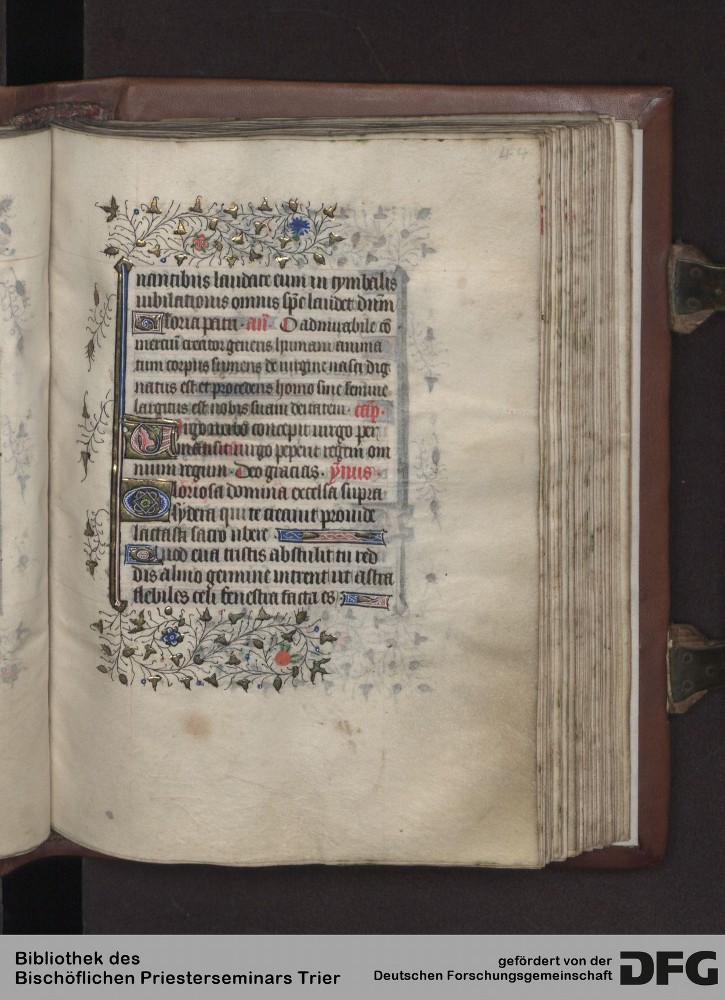 44
nantibus laudate eum in cymbalis
iubilationis omnis sp̄s laudet dn̄m
Gloria patri. an̄. O admirabile cō
merciū creator generis humani anima
tum corpus sumens de uirgine nasci dig
natus est et procedens homo sine semine
largitus est nobis suam deitatem. cap̄.
Uirgo uerbo concepit uirgo per
mansit uirgo peperit regem om
nium regum. Deo gracias. ymus.
Gloriosa domina excelsa supra
sydera qui te creauit prouide
lactasti sacro ubere
Quod eua tristis abstulit tu red
dis almo germine intrent ut astra
flebiles celi fenestra facta es
Bibliothek des
Bischöflichen Priesterseminars Trier
gefördert von der
Deutschen Forschungsgemeinschaft
DFG